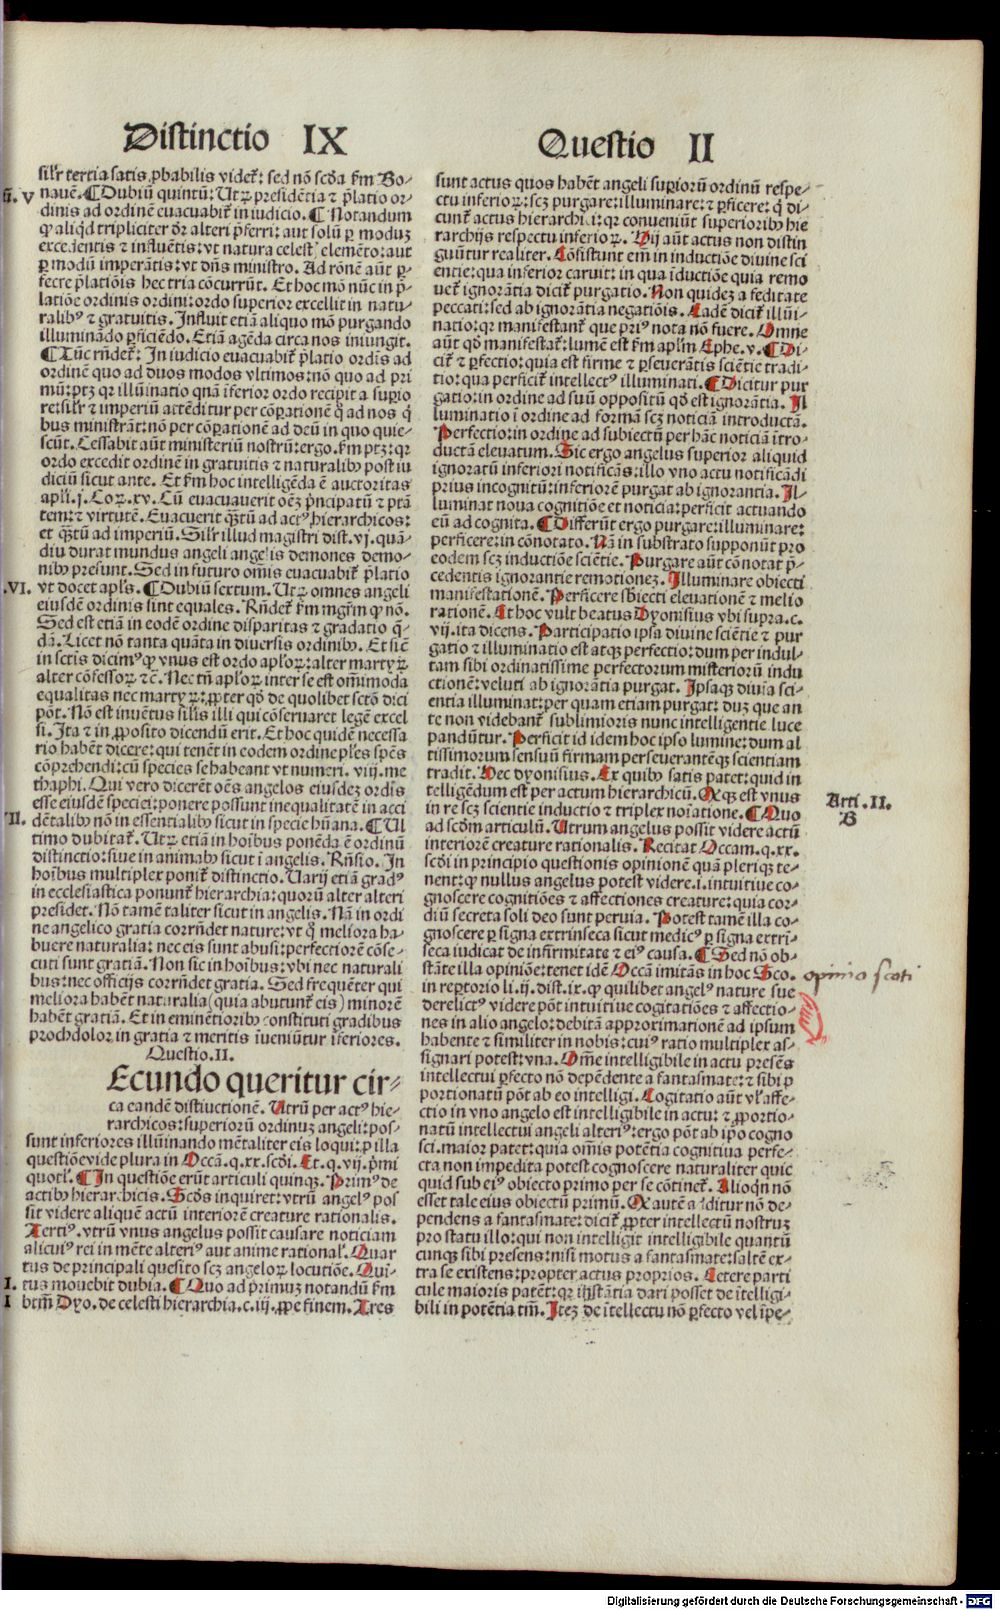 Distinctio IX
Questio II
silr̄ tertia satis ꝓbabilis videt̄: sed nō scd̄a ẜm Bo-
nauē. ¶ Dubiū quintū: Utꝝ presidētia ⁊ p̄latio or-
dinis ad ordinē euacuabit̄ in iudicio. ¶ Notandum
ꝙ aliqd̄ tripliciter dr̄ alteri p̄ferri: aut solū ꝑ moduꝫ
excedentis ⁊ influētis: vt natura celest̄ elemēto: aut
ꝑ modū imperātis: vt dn̄s ministro. Ad rōnē aūt ꝑ-
fecte p̄latiōis hec tria cōcurrūt. Et hoc mō nūc in p̄-
latiōe ordinis ordini: ordo superior excellit in natu-
ralibꝰ ⁊ gratuitis. Influit etiā aliquo mō purgando
illuminādo ꝑficiēdo. Etiā agēda circa nos iniungit.
¶ Tūc rn̄det̄: In iudicio euacuabit̄ p̄latio ordīs ad
ordinē quo ad duos modos vltimos: nō quo ad pri
mū: ptꝫ qꝛ illūinatio qnā īferior ordo recipit a supio
re: silr̄ ⁊ imperiū attēditur per cōpationē q̄ ad nos q̄
bus ministrāt: nō per cōpationē ad deū in quo quie-
scūt. Cessabit aūt ministeriū nostrū: ergo. ẜm ptꝫ: qꝛ
ordo excedit ordinē in gratuitis ⁊ naturalibꝰ post iu
diciū sicut ante. Et ẜm hoc intelligēda ē auctoritas
apli .j. Coꝝ. xv. Cū euacuauerit oēꝫ p̄ncipatū ⁊ ptā
tem: ⁊ virtutē. Euacuerit qꝫtū ad actꝰ hierarchicos:
et qꝫtū ad imperiū. Silr̄ illud magistri dist. vj. quā-
diu durat mundus angeli angelis demones demo-
nibꝰ presunt. Sed in futuro om̄is euacuabit̄ p̄latio
vt docet apl̄s. ¶ Dubiū sextum. Utꝝ omnes angeli
eiusdē ordinis sint equales. Rn̄det̄ ẜm mgr̄m ꝙ nō.
Sed est etiā in eodē ordine disparitas ⁊ gradatio q̄-
dā. Licet nō tanta quāta in diuersis ordinibꝰ. Et sic̄
in sct̄is dicimꝰ ꝙ vnus est ordo apl̄oꝝ: alter martyꝝ
alter cōfessoꝝ ⁊c̄. Nec tn̄ apl̄oꝝ inter se est om̄imoda
equalitas nec martyꝝ: ꝓpter qd̄ de quolibet scto dici
pōt. Nō est inuētus silis illi qui cōseruaret legē excel
si. Ita ⁊ in ꝓposito dicendū erit. Et hoc quidē necessa
rio habēt dicere: qui tenēt in eodem ordine pl̄es spēs
cōprehendi: cū species se habeant vt numeri. viij. me
thaphi. Qui vero dicerēt oēs angelos eiusdeꝫ ordīs
esse eiusdē speciei: ponere possunt inequalitatē in acci
dētalibꝰ nō in essentialibꝰ sicut in specie hūana. ¶ Ul
timo dubitat̄. Utꝝ etiā in hoibus ponēda ē ordinū
distinctio: siue in animabꝰ sicut ī angelis. Rn̄sio. In
hoibus multiplex ponit̄ distinctio. Uarij etiā gradꝰ
in ecclesiastica ponunt̄ hierarchia: quorū alter alteri
presidet. Nō tamē taliter sicut in angelis. Nā in ordi
ne angelico gratia corrn̄det nature: vt q̄ meliora ha-
buere naturalia: nec eis sunt abusi: perfectiorē cōse-
cuti sunt gratiā. Non sic in hoibus: vbi nec naturali
bus: nec officijs corrn̄det gratia. Sed frequēter qui
meliora habēt naturalia (quia abutunt̄ eis) minorē
habēt gratiā. Et in eminētioribꝰ constituti gradibus
prochdolor in gratia ⁊ meritis īueniūtur īferiores.
Questio. II.
Ecundo queritur cir-
ca eandē distiuctionē. Utrū per actꝰ hie-
rarchicos: superiorū ordinuꝫ angeli: pos-
sunt inferiores illūinando mētaliter eis loqui: ꝑ illa
questiōe vide plura in Occā. q. xx. scd̄i. Et. q. vij. p̄mi
quotl. ¶ In questiōe erūt articuli quinqꝫ. Primꝰ de
actibꝰ hierarchicis. Scd̄s inquiret: vtrū angelꝰ pos
sit videre aliquē actū interiorē creature rationalis.
Tertiꝰ. vtrū vnus angelus possit causare noticiam
alicuiꝰ rei in mēte alteriꝰ aut anime rational̄. Quar
tus de principali quesito scꝫ angeloꝝ locutiōe. Qui-
tus mouebit dubia. ¶ Quo ad primuꝫ notandū ẜm
btm̄ Dyo. de celesti hierarchia. c. iij. ꝓpe finem. Tres
sunt actus quos habēt angeli superiorū ordinū respe-
ctu inferioꝝ: scꝫ purgare: illuminare: ⁊ ꝑficere: q̄ di-
cunt̄ actus hierarchici: qꝛ conueniūt superioribꝰ hie
rarchijs respectu inferioꝝ. Hij aūt actus non distin
guūtur realiter. Cōsistunt em̄ in inductiōe diuine sci
entie: qua inferior caruit: in qua īductiōe quia remo
uet̄ ignorātia dicit̄ purgatio. Non quideꝫ a feditate
peccati: sed ab ignorātia negatiōis. Eadē dicit̄ illūi-
natio: qꝛ manifestant̄ que priꝰ nota nō fuere. Omne
aūt qd̄ manifestat̄: lumē est ẜm aplm̄ Ephe. v. ¶ Di-
cit̄ ⁊ ꝑfectio: quia est firme ⁊ ꝑseuerātis sciētie tradi-
tio: qua perficit̄ intellectꝰ illuminati. ¶ Dicitur pur
gatio: in ordine ad suū oppositū qd̄ est ignorātia. Il
luminatio ī ordine ad formā scꝫ noticiā introductā.
Perfectio: in ordine ad subiectū per hāc noticiā itro-
ductā eleuatum. Sic ergo angelus superior aliquid
ignoratū inferiori notificās: illo vno actu notificādi
prius incognitū: inferiorē purgat ab ignorantia. Il-
luminat noua cognitiōe et noticia: perficit actuando
eū ad cognita. ¶ Differūt ergo purgare: illuminare:
perficere: in cōnotato. Nā in substrato supponūt pro
eodem scꝫ inductiōe sciētie. Purgare aūt cōnotat p̄-
cedentis ignorantie remotionez. Illuminare obiecti
manifestationē. Perficere sbiecti eleuationē ⁊ melio
rationē. Et hoc vult beatus Dyonisius vbi supra. c.
vij. ita dicens. Participatio ipsa diuine sciētie ⁊ pur
gatio ⁊ illuminatio est atqꝫ perfectio: dum per indul-
tam sibi ordinatissime perfectorum misteriorū indu
ctionē: veluti ab ignorātia purgat. Ipsaqꝫ diuia sci-
entia illuminat: per quam etiam purgat: duꝫ que an
te non videbant̄ sublimioris nunc intelligentie luce
pandūtur. Perficit id idem hoc ipso lumine: dum al
tissimorum sensuū firmam perseuerantēqꝫ scientiam
tradit. Hec dyonisius. Ex quibꝰ satis patet: quid in
telligēdum est per actum hierarchicū. Qꝫ est vnus
in re scꝫ scientie inductio ⁊ triplex noiatione. ¶ Quo
ad scd̄m articulū. Utrum angelus possit videre actū
interiorē creature rationalis. Recitat Occam. q. xx.
scd̄i in principio questionis opinionē quā pleriqꝫ te-
nent: ꝙ nullus angelus potest videre .i. intuitiue co-
gnoscere cognitiōes ⁊ affectiones creature: quia cor-
diū secreta soli deo sunt peruia. Potest tamē illa co-
gnoscere ꝑ signa extrinseca sicut medicꝰ ꝑ signa extrī-
seca iudicat de infirmitate ⁊ eiꝰ causa. ¶ Sed nō ob-
stāte illa opiniōe: tenet idē Occā imitās in hoc Sco.
in reꝑtorio li. ij. dist. ix. ꝙ quilibet angelꝰ nature sue
derelictꝰ videre pōt intuitiue cogitatiōes ⁊ affectio-
nes in alio angelo: debitā approximationē ad ipsum
habente ⁊ similiter in nobis: cuiꝰ ratio multiplex as-
signari potest: vna. Om̄e intelligibile in actu presēs
intellectui ꝑfecto nō depēdente a fantasmate: ⁊ sibi ꝓ
portionatū pōt ab eo intelligi. Cogitatio aūt vl̄ affe-
ctio in vno angelo est intelligibile in actu: ⁊ ꝓportio-
natū intellectui angeli alteriꝰ: ergo pōt ab ip̄o cogno
sci. maior patet: quia om̄is potētia cognitiua perfe-
cta non impedita potest cognoscere naturaliter quic
quid sub eiꝰ obiecto primo per se cōtinet̄. Alioqn̄ nō
esset tale eius obiectū primū. Qꝫ autē additur nō de-
pendens a fantasmate: dicit̄ ꝓpter intellectū nostruꝫ
pro statu illo: qui non intelligit intelligibile quantū
cunqꝫ sibi presens: nisi motus a fantasmate: saltē ex-
tra se existens: propter actus proprios. Cetere parti
cule maioris patēt: qꝛ īstātia dari posset de ītelligi-
bili in potētia tm̄. Iteꝫ de ītellectu nō ꝑfecto vel īpe-
ū. V
.VI.
II.
I.
I
Arti .II.
B
opinio scoti